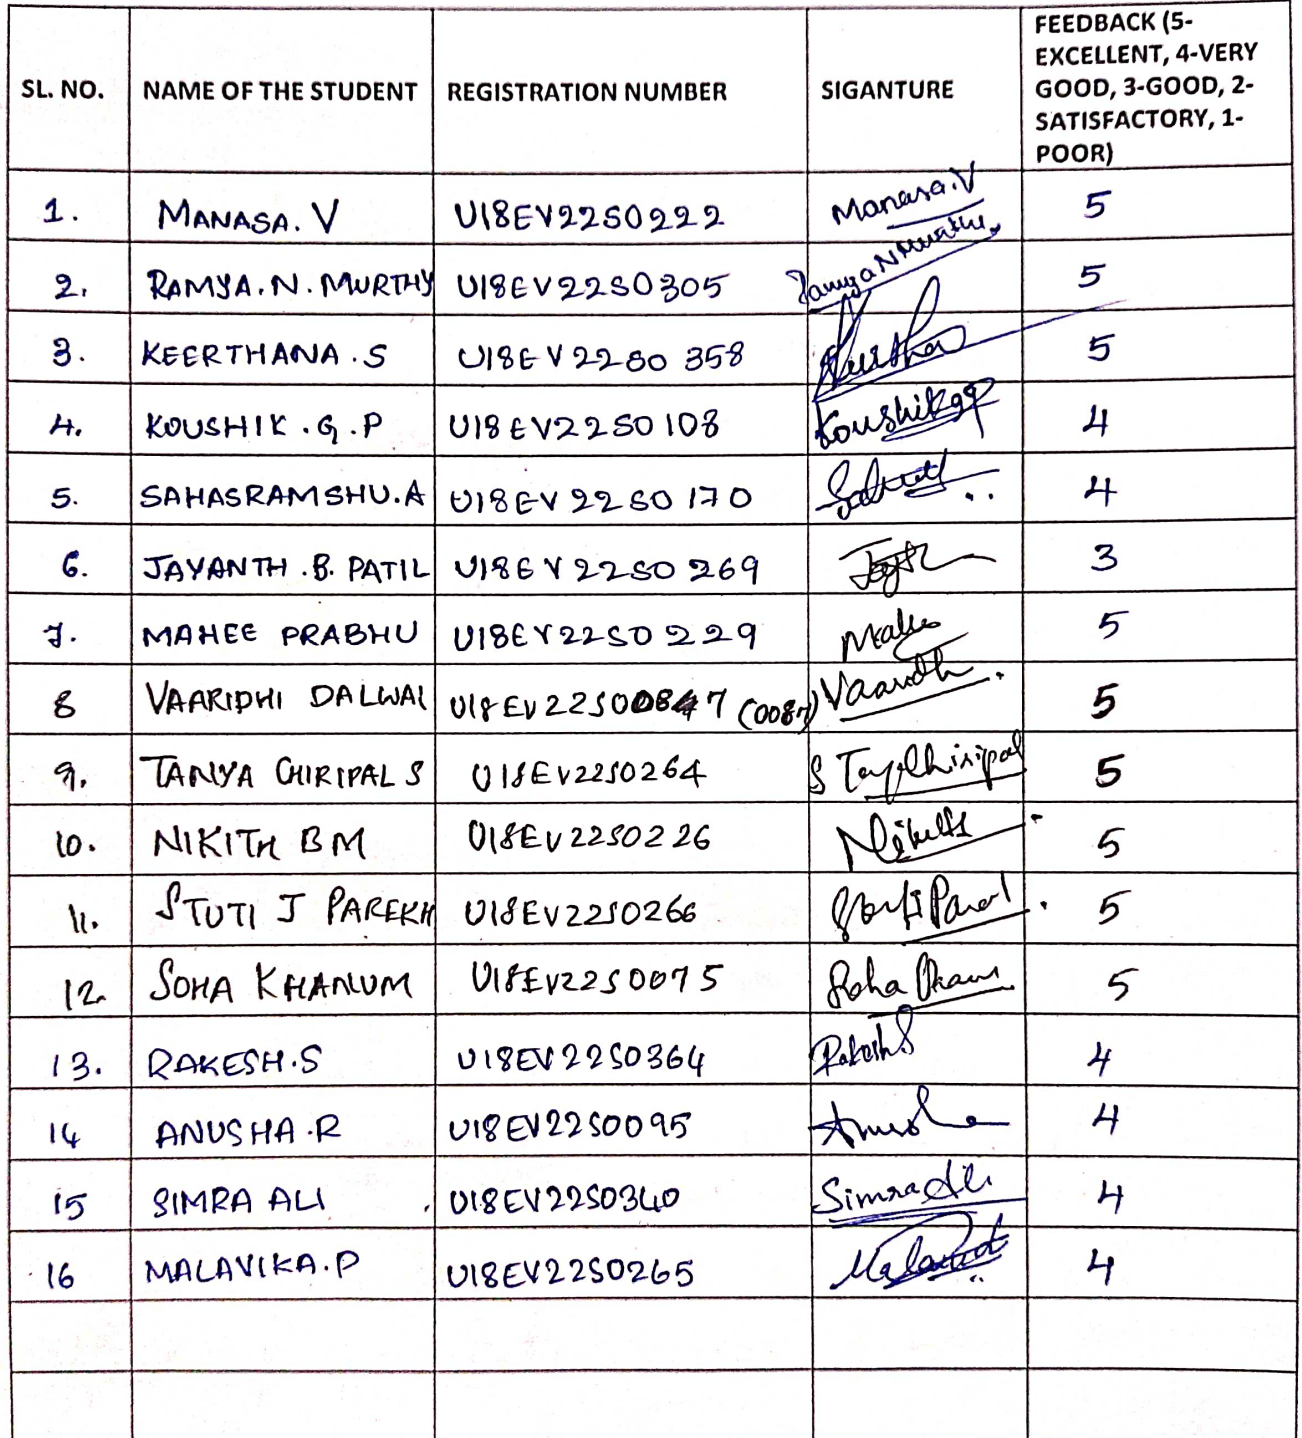 SL. NO. NAME OF THE STUDENT REGISTRATION NUMBER SIGANTURE FEEDBACK (5-
EXCELLENT, 4-VERY
GOOD, 3-GOOD, 2-
SATISFACTORY, 1-
POOR)
1. MANASA. V U18EV22S0222 Manasa.V 5
2. RAMYA.N. MURTHY U18EV22S0305 Ramya N Murthy 5
3. KEERTHANA.S U18EV22S0358 5
4. KOUSHIK.G.P U18EV22S0108 Koushikgp 4
5. SAHASRAMSHU.A U18EV22S0170 4
6. JAYANTH.B. PATIL U18EV22S0269 3
7. MAHEE PRABHU U18EV22S0229 5
8 VAARIDHI DALWAI (0087) 5
9. TANYA CHIRIPAL S U18EV22S0264 5
10. NIKITH B M U18EV22S0226 5
11. STUTI J PAREKH U18EV22S0266 5
12. SOHA KHANUM U18EV22S0075 5
13. RAKESH.S U18EV22S0364 Rakesh.S 4
14 ANUSHA.R U18EV22S0095 Anusha 4
15 SIMRA ALI U18EV22S0340 Simra Ali 4
16 MALAVIKA.P U18EV22S0265 4